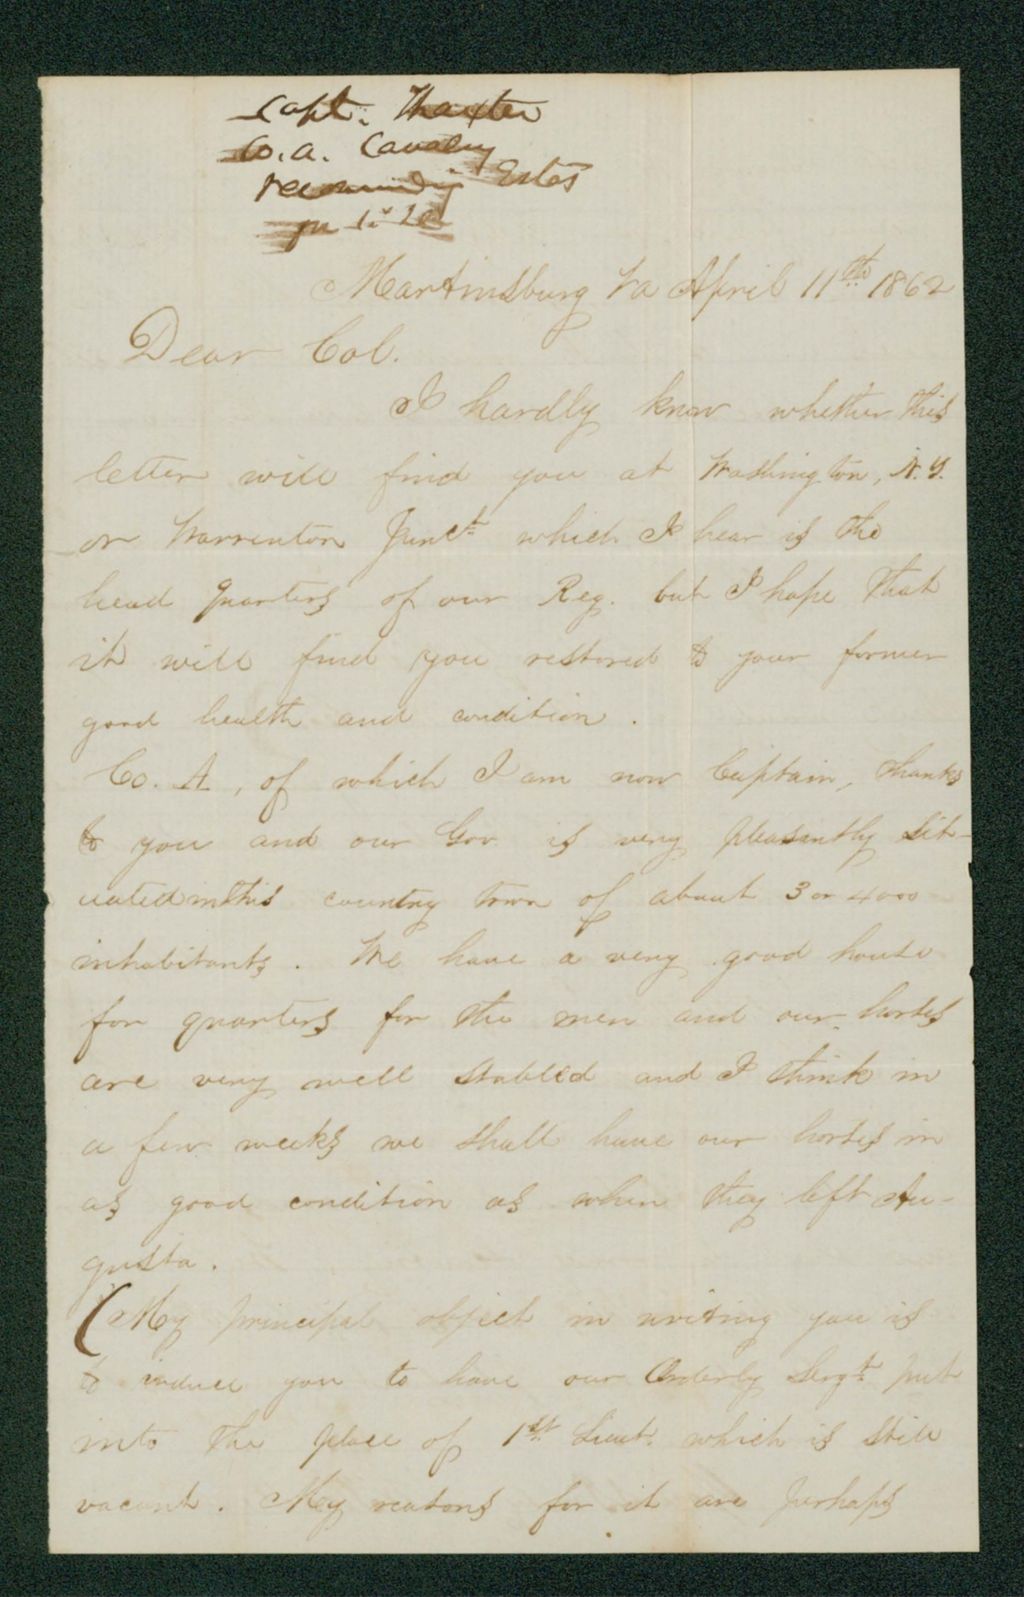 Capt. Thaxter
Co. A. Cavalry
recommending Estes
for 1st Lt
Martinsburg Va April 11th 1862
Dear Col.
I hardly know whether this
letter will find you at Washington, N.Y.
or Warrenton Junct. which I hear is the
head quarters of our Reg. but I hope that
it will find you restored to your former
good health and condition.
Co. A, of which I am now Captain, thanks
to you and our Gov. is very pleasantly sit-
uated in this country town of about 3 or 4000
inhabitants. We have a very good house
for quarters for the men and our horses
are very well stabled and I think in
a few weeks we shall have our horses in
as good condition as when they left Au-
gusta.
(My principal object in writing you is
to induce you to have our Orderly Sergt. put
into the place of 1st Lieut. which is still
vacant. My reasons for it are perhaps